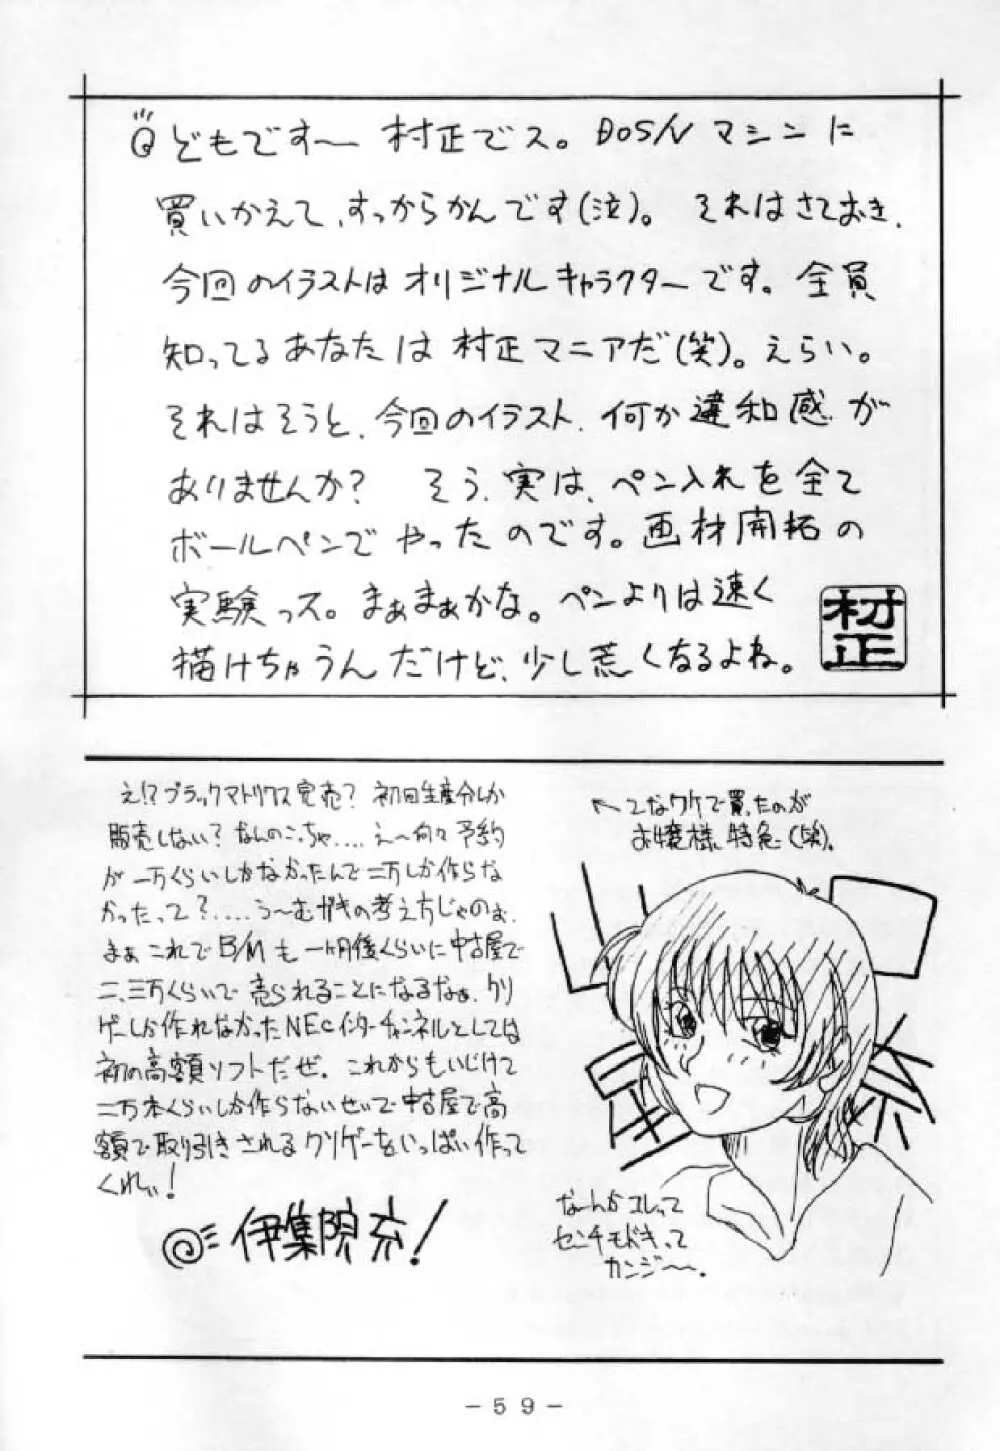 どもです〜 村正でス。DOS/V マシンに
買いかえて、すっからかんです(泣)。 それはさておき、
今回のイラストはオリジナルキャラクターです。全員
知ってるあなたは村正マニアだ(笑)。えらい。
それはそうと、今回のイラスト、何か違和感が
ありませんか? そう、実は、ペン入れを全て
ボールペンでやったのです。画材開拓の
実験っス。まぁまぁかな。ペンよりは速く
描けちゃうんだけど、少し荒くなるよね。
村正
え!?ブラックマトリクス完売? 初回生産分しか
販売しない?なんのこっちゃ....え〜何々予約
が一万くらいしかなかったんで二万しか作らな
かったって?....う〜むガキの考え方じゃのぉ。
まぁこれでB/Mも一ヶ月後くらいに中古屋で
二、三万くらいで売られることになるなぁ。クリ
ゲーしか作れなかったNECインターチャンネルとしては
初の高額ソフトだぜ。これからもいじけて
二万本くらいしか作らないせいで中古屋で高
額で取り引きされるクソゲーをいっぱい作って
くれぃ!
伊集院 !
こなワケで買ったのが
お嬢様特急(笑)。
なーんかコレって
センチモドキって
カンジ〜。
-59-